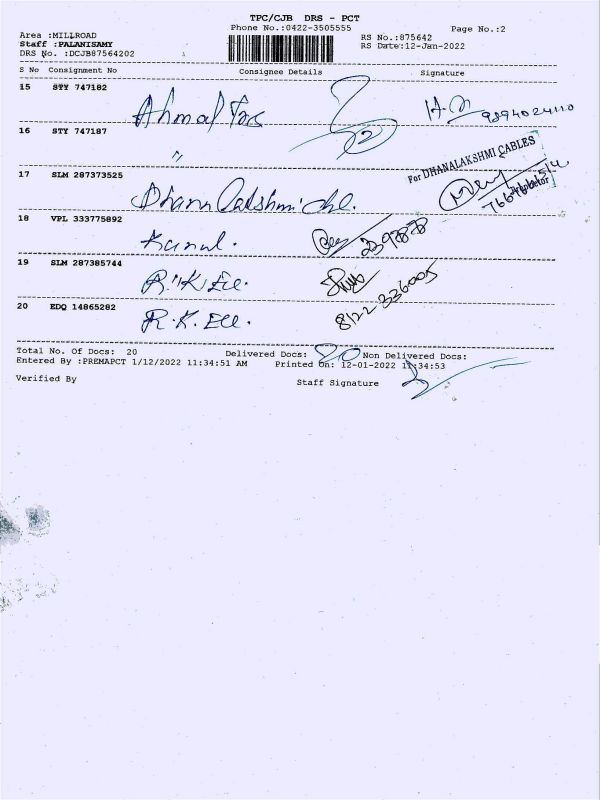 TPC/CJB DRS - PCT
Phone No.:0422-3505555
Page No.:2
Area :MILLROAD
Staff :PALANISAMY
DRS No. :DCJB87564202
RS No.:875642
RS Date:12-Jan-2022
S No Consignment No Consignee Details Signature
15 STY 747182
Ahmal
9894024110
16 STY 747187
"
2
17 SLM 287373525
Dhana Lakshmi
For DHANALAKSHMI CABLES
18 VPL 333775892
Kamal.
19 SLM 287385744
R.K. Ele.
8122336005
20 EDQ 14865282
R.K. Ele.
Total No. Of Docs: 20 Delivered Docs: 20 Non Delivered Docs:
Entered By :PREMAPCT 1/12/2022 11:34:51 AM Printed On: 12-01-2022 11:34:53
Verified By Staff Signature